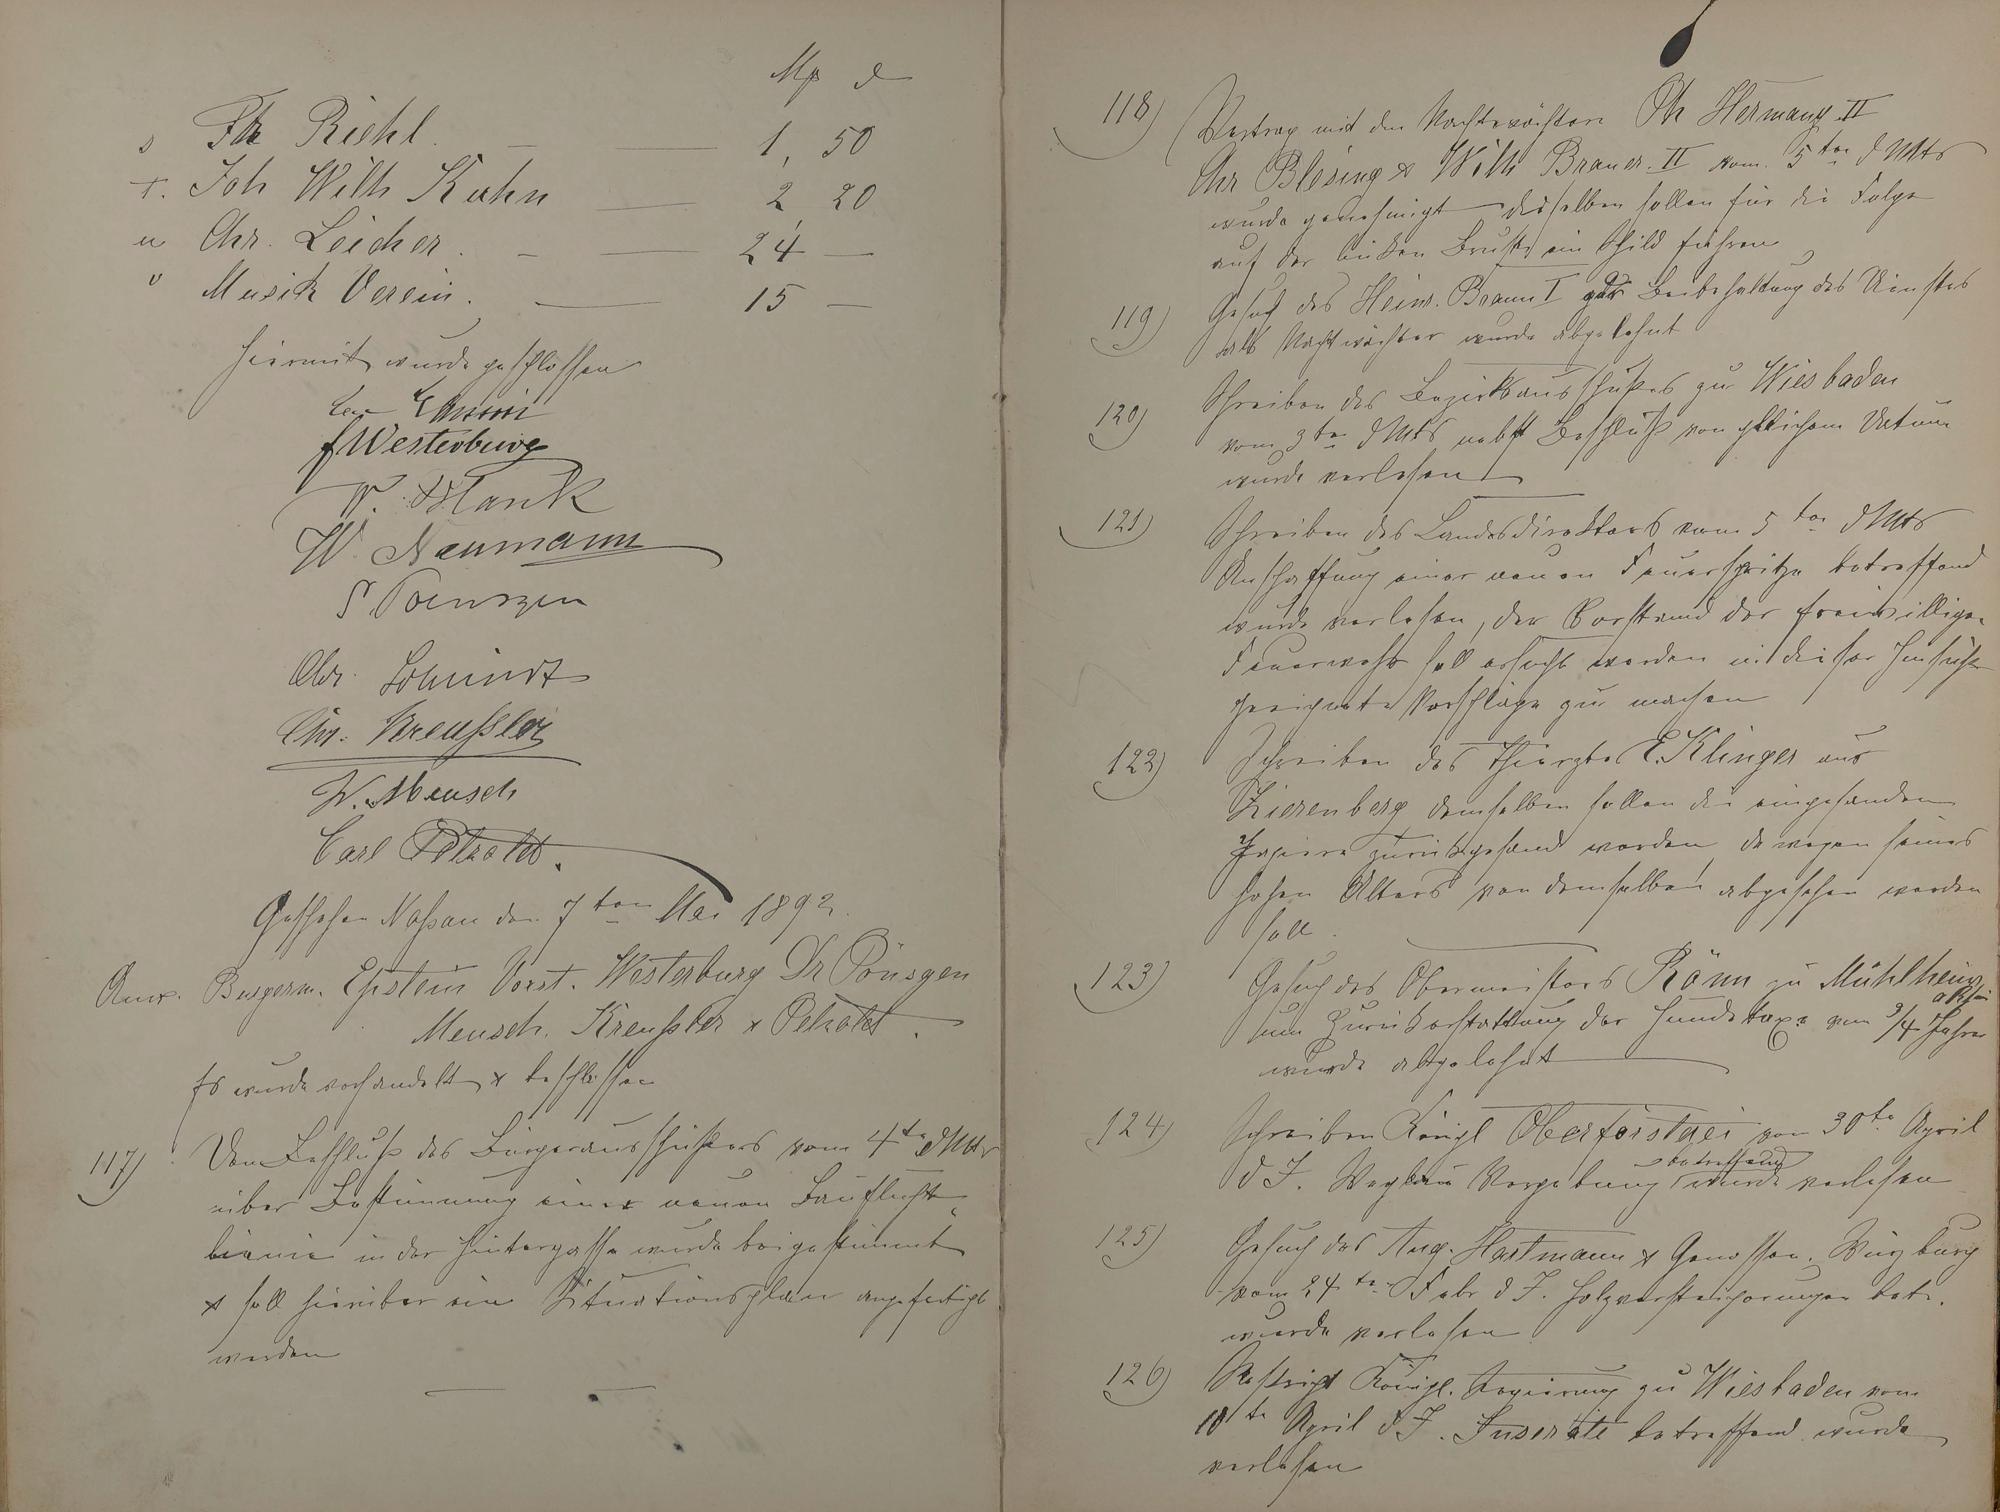 Mk d
s Ph Riehl. — 1, 50
t. Joh Wilh Kuhn — 2, 20
u Chr. Leicher. — 24 —
v Musik Verein. — 15 —
hiermit wurde geschlossen
FWesterburg
W. Blank
W. Naumann
Poensgen
Chr. Schmidt
Chr. Kreußler
W. Mensch
Carl Petzold.
Geschehen Naßau den 7ten Mai 1892.
Anw. Burgerm. Epstein Vorst. Westerburg Dr Pönsgen
Mensch. Kreußler & Petzold.
Es wurde verhandelt & beschlossen
117) Dem Beschluß des Bürgerausschußes vom 4ten d Mts
über Bestimmung einer neuen Bauflucht-
linie in der Hintergasse wurde beigestimmt
& soll hierüber ein Situationsplan angefertigt
werden
118) Vertrag mit den Nachtwächtern Ph Hermany II
Chr Blesing & Wilh Braun II vom 5ten d Mts
wurde genehmigt dieselben sollen für die Folge
auf der linken Brust ein Schild führen
119) Gesuch des Heinr. Braun I Beibehaltung des Dienstes
als Nachtwächter wurde abgelehnt
120) Schreiben des Bezirksausschußes zu Wiesbaden
vom 3ten d Mts nebst Beschluß von gleichem Datum
wurde verlesen
121) Schreiben des Landesdirektors vom 5ten d Mts
Anschaffung einer neuen Feuerspritze betreffend
wurde verlesen, der Vorstand der freiwilligen
Feuerwehr soll ersucht werden in dieser Hinsicht
geeignete Vorschläge zu machen
122) Schreiben des Thierarztes E. Klinger aus
Zierenberg demselben sollen die eingesandten
Papiere zurückgesandt werden, da wegen seines
hohen Alters von demselben abgesehen werden
soll.
123) Gesuch des Obermeisters Rönn zu Mühlheim
a Rhein
um Zurückerstattung der Hundetaxe von 3/4 Jahren
wurde abgelehnt
124) Schreiben Königl Oberförsterei vom 30ten April
betreffend
d J. Wegbau Vergebung wurde verlesen
125) Gesuch des Aug. Hartmann & Genossen.
vom 24ten Febr d J. Holzversteigerungen betr.
wurde verlesen
126) Reskript Königl. Regierung zu Wiesbaden vom
April d J. Inserate betreffend wurde
verlesen